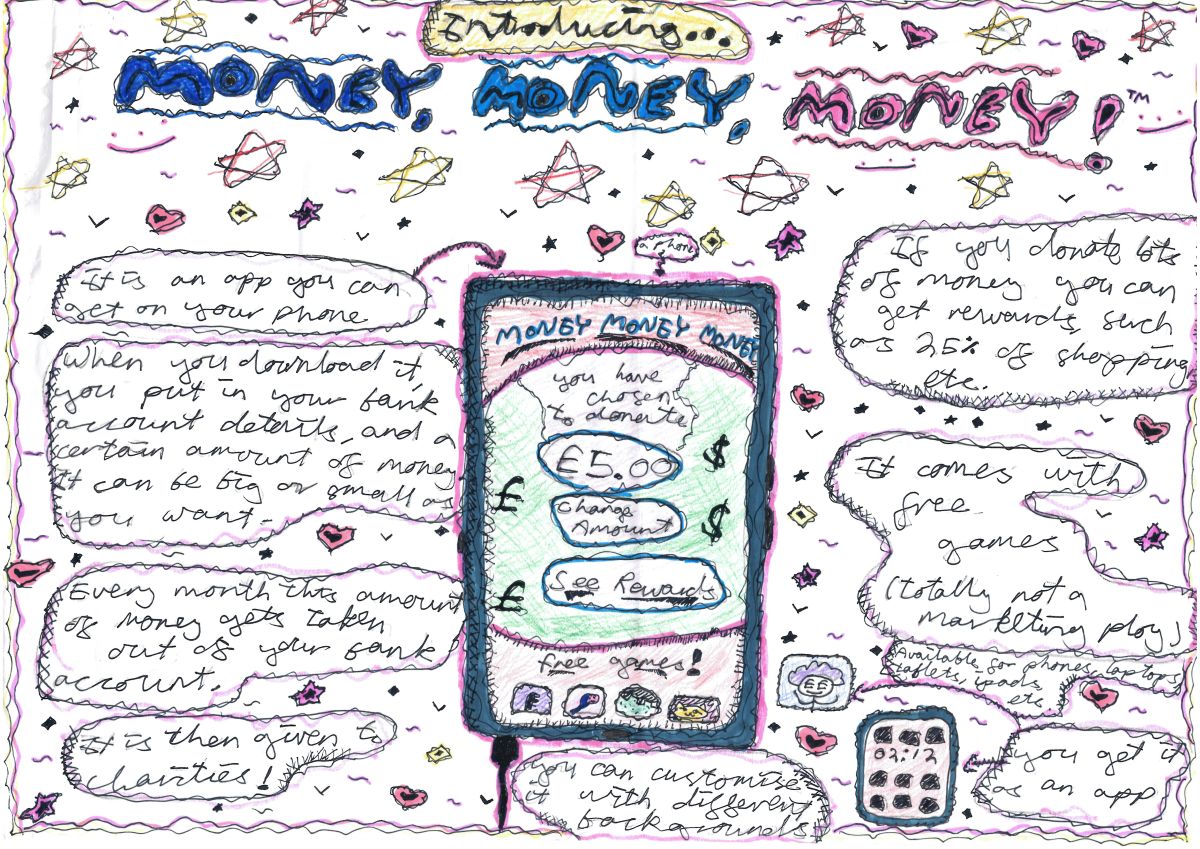 Introducing...
MONEY, MONEY, MONEY!™
a phone
It is an app you can
get on your phone
When you download it,
you put in your bank
account details, and a
certain amount of money
it can be big or small as
you want.
Every month this amount
of money gets taken
out of your bank
account.
It is then given to
charities!
MONEY MONEY MONEY
you have
chosen
to donate
£5.00
Change
Amount
See Rewards
£
£
$
$
free games!
£
You can customise
it with different
backgrounds
If you donate lots
of money you can
get rewards, such
as 25% of shopping
etc.
It comes with
free
games
(totally not a
marketing ploy)
Available for phones, laptops
tablets, ipads
etc
02:12
You get it
as an app